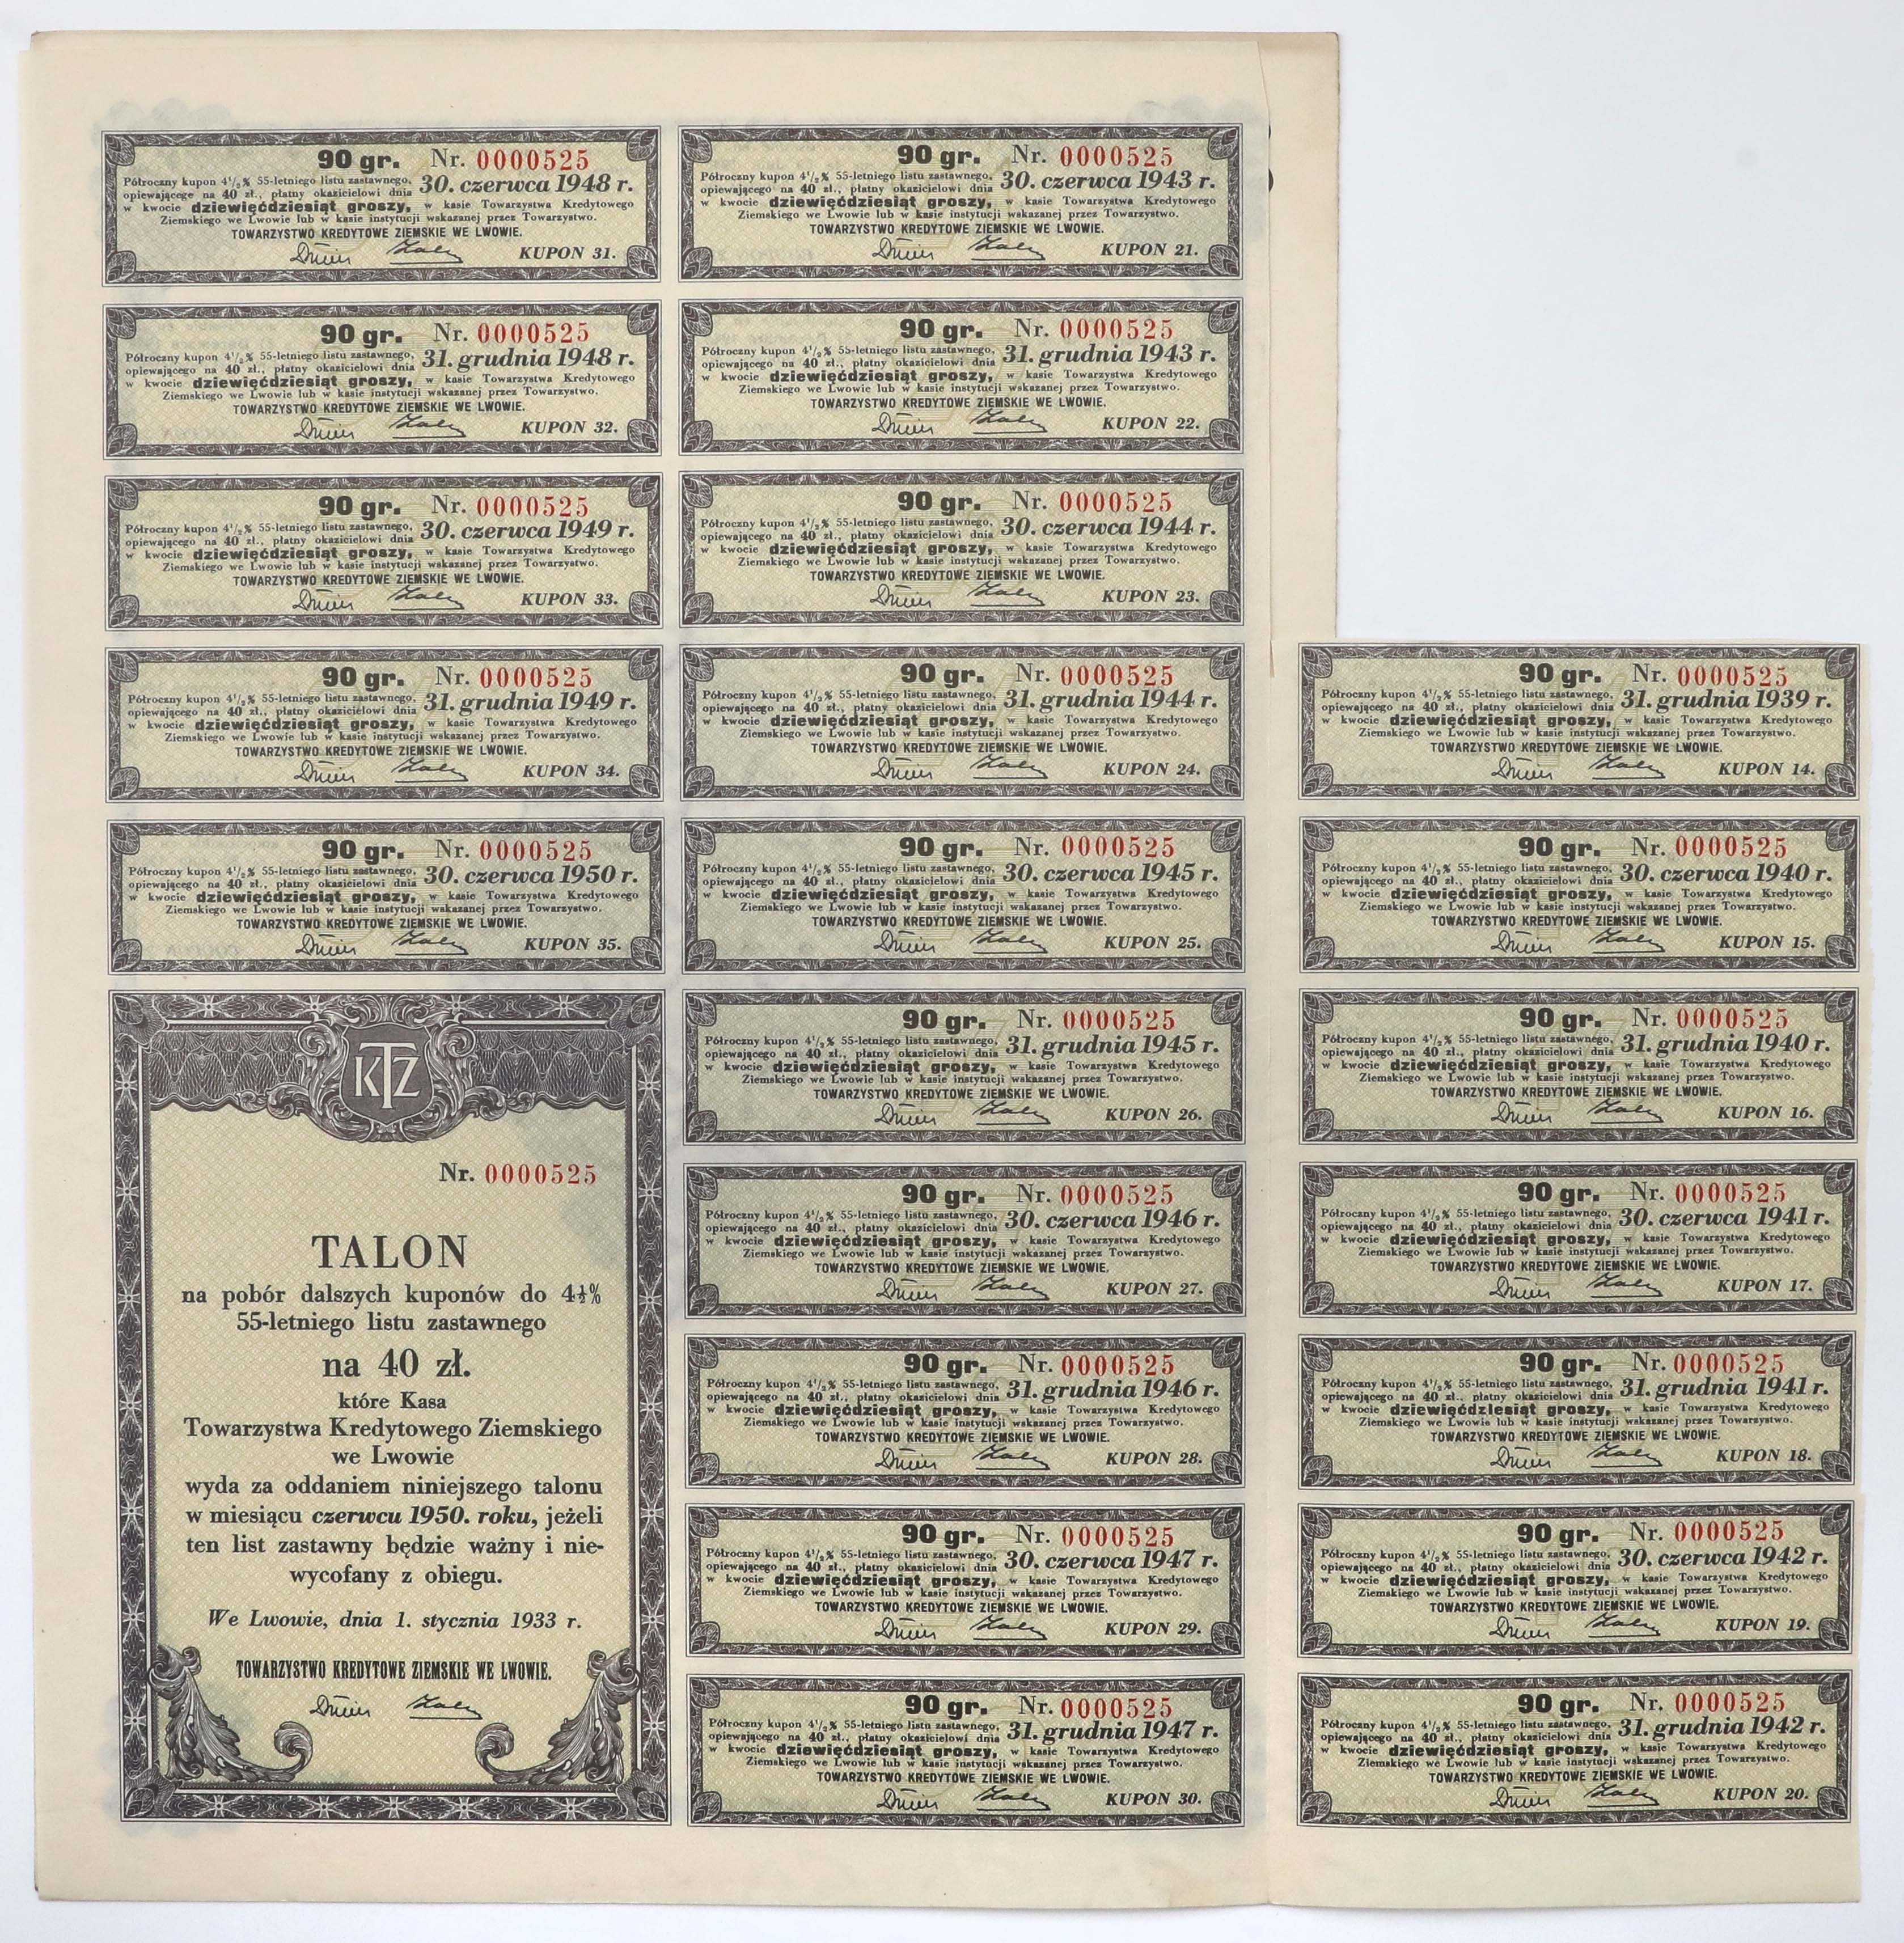 90 gr. Nr. 0000525
Półroczny kupon 4½% 55-letniego listu zastawnego,
opiewającego na 40 zł., płatny okazicielowi dnia 30. czerwca 1948 r.
w kwocie dziewięćdziesiąt groszy, w kasie Towarzystwa Kredytowego
Ziemskiego we Lwowie lub w kasie instytucji wskazanej przez Towarzystwo.
TOWARZYSTWO KREDYTOWE ZIEMSKIE WE LWOWIE.
KUPON 31.
90 gr. Nr. 0000525
Półroczny kupon 4½% 55-letniego listu zastawnego,
opiewającego na 40 zł., płatny okazicielowi dnia 31. grudnia 1948 r.
w kwocie dziewięćdziesiąt groszy, w kasie Towarzystwa Kredytowego
Ziemskiego we Lwowie lub w kasie instytucji wskazanej przez Towarzystwo.
TOWARZYSTWO KREDYTOWE ZIEMSKIE WE LWOWIE.
KUPON 32.
90 gr. Nr. 0000525
Półroczny kupon 4½% 55-letniego listu zastawnego,
opiewającego na 40 zł., płatny okazicielowi dnia 30. czerwca 1949 r.
w kwocie dziewięćdziesiąt groszy, w kasie Towarzystwa Kredytowego
Ziemskiego we Lwowie lub w kasie instytucji wskazanej przez Towarzystwo.
TOWARZYSTWO KREDYTOWE ZIEMSKIE WE LWOWIE.
KUPON 33.
90 gr. Nr. 0000525
Półroczny kupon 4½% 55-letniego listu zastawnego,
opiewającego na 40 zł., płatny okazicielowi dnia 31. grudnia 1949 r.
w kwocie dziewięćdziesiąt groszy, w kasie Towarzystwa Kredytowego
Ziemskiego we Lwowie lub w kasie instytucji wskazanej przez Towarzystwo.
TOWARZYSTWO KREDYTOWE ZIEMSKIE WE LWOWIE.
KUPON 34.
90 gr. Nr. 0000525
Półroczny kupon 4½% 55-letniego listu zastawnego,
opiewającego na 40 zł., płatny okazicielowi dnia 30. czerwca 1950 r.
w kwocie dziewięćdziesiąt groszy, w kasie Towarzystwa Kredytowego
Ziemskiego we Lwowie lub w kasie instytucji wskazanej przez Towarzystwo.
TOWARZYSTWO KREDYTOWE ZIEMSKIE WE LWOWIE.
KUPON 35.
KTZ
Nr. 0000525
TALON
na pobór dalszych kuponów do 4½%
55-letniego listu zastawnego
na 40 zł.
które Kasa
Towarzystwa Kredytowego Ziemskiego
we Lwowie
wyda za oddaniem niniejszego talonu
w miesiącu czerwcu 1950. roku, jeżeli
ten list zastawny będzie ważny i nie-
wycofany z obiegu.
We Lwowie, dnia 1. stycznia 1933 r.
TOWARZYSTWO KREDYTOWE ZIEMSKIE WE LWOWIE.
90 gr. Nr. 0000525
Półroczny kupon 4½% 55-letniego listu zastawnego,
opiewającego na 40 zł., płatny okazicielowi dnia 30. czerwca 1943 r.
w kwocie dziewięćdziesiąt groszy, w kasie Towarzystwa Kredytowego
Ziemskiego we Lwowie lub w kasie instytucji wskazanej przez Towarzystwo.
TOWARZYSTWO KREDYTOWE ZIEMSKIE WE LWOWIE.
KUPON 21.
90 gr. Nr. 0000525
Półroczny kupon 4½% 55-letniego listu zastawnego,
opiewającego na 40 zł., płatny okazicielowi dnia 31. grudnia 1943 r.
w kwocie dziewięćdziesiąt groszy, w kasie Towarzystwa Kredytowego
Ziemskiego we Lwowie lub w kasie instytucji wskazanej przez Towarzystwo.
TOWARZYSTWO KREDYTOWE ZIEMSKIE WE LWOWIE.
KUPON 22.
90 gr. Nr. 0000525
Półroczny kupon 4½% 55-letniego listu zastawnego,
opiewającego na 40 zł., płatny okazicielowi dnia 30. czerwca 1944 r.
w kwocie dziewięćdziesiąt groszy, w kasie Towarzystwa Kredytowego
Ziemskiego we Lwowie lub w kasie instytucji wskazanej przez Towarzystwo.
TOWARZYSTWO KREDYTOWE ZIEMSKIE WE LWOWIE.
KUPON 23.
90 gr. Nr. 0000525
Półroczny kupon 4½% 55-letniego listu zastawnego,
opiewającego na 40 zł., płatny okazicielowi dnia 31. grudnia 1944 r.
w kwocie dziewięćdziesiąt groszy, w kasie Towarzystwa Kredytowego
Ziemskiego we Lwowie lub w kasie instytucji wskazanej przez Towarzystwo.
TOWARZYSTWO KREDYTOWE ZIEMSKIE WE LWOWIE.
KUPON 24.
90 gr. Nr. 0000525
Półroczny kupon 4½% 55-letniego listu zastawnego,
opiewającego na 40 zł., płatny okazicielowi dnia 30. czerwca 1945 r.
w kwocie dziewięćdziesiąt groszy, w kasie Towarzystwa Kredytowego
Ziemskiego we Lwowie lub w kasie instytucji wskazanej przez Towarzystwo.
TOWARZYSTWO KREDYTOWE ZIEMSKIE WE LWOWIE.
KUPON 25.
90 gr. Nr. 0000525
Półroczny kupon 4½% 55-letniego listu zastawnego,
opiewającego na 40 zł., płatny okazicielowi dnia 31. grudnia 1945 r.
w kwocie dziewięćdziesiąt groszy, w kasie Towarzystwa Kredytowego
Ziemskiego we Lwowie lub w kasie instytucji wskazanej przez Towarzystwo.
TOWARZYSTWO KREDYTOWE ZIEMSKIE WE LWOWIE.
KUPON 26.
90 gr. Nr. 0000525
Półroczny kupon 4½% 55-letniego listu zastawnego,
opiewającego na 40 zł., płatny okazicielowi dnia 30. czerwca 1946 r.
w kwocie dziewięćdziesiąt groszy, w kasie Towarzystwa Kredytowego
Ziemskiego we Lwowie lub w kasie instytucji wskazanej przez Towarzystwo.
TOWARZYSTWO KREDYTOWE ZIEMSKIE WE LWOWIE.
KUPON 27.
90 gr. Nr. 0000525
Półroczny kupon 4½% 55-letniego listu zastawnego,
opiewającego na 40 zł., płatny okazicielowi dnia 31. grudnia 1946 r.
w kwocie dziewięćdziesiąt groszy, w kasie Towarzystwa Kredytowego
Ziemskiego we Lwowie lub w kasie instytucji wskazanej przez Towarzystwo.
TOWARZYSTWO KREDYTOWE ZIEMSKIE WE LWOWIE.
KUPON 28.
90 gr. Nr. 0000525
Półroczny kupon 4½% 55-letniego listu zastawnego,
opiewającego na 40 zł., płatny okazicielowi dnia 30. czerwca 1947 r.
w kwocie dziewięćdziesiąt groszy, w kasie Towarzystwa Kredytowego
Ziemskiego we Lwowie lub w kasie instytucji wskazanej przez Towarzystwo.
TOWARZYSTWO KREDYTOWE ZIEMSKIE WE LWOWIE.
KUPON 29.
90 gr. Nr. 0000525
Półroczny kupon 4½% 55-letniego listu zastawnego,
opiewającego na 40 zł., płatny okazicielowi dnia 31. grudnia 1947 r.
w kwocie dziewięćdziesiąt groszy, w kasie Towarzystwa Kredytowego
Ziemskiego we Lwowie lub w kasie instytucji wskazanej przez Towarzystwo.
TOWARZYSTWO KREDYTOWE ZIEMSKIE WE LWOWIE.
KUPON 30.
90 gr. Nr. 0000525
Półroczny kupon 4½% 55-letniego listu zastawnego,
opiewającego na 40 zł., płatny okazicielowi dnia 31. grudnia 1939 r.
w kwocie dziewięćdziesiąt groszy, w kasie Towarzystwa Kredytowego
Ziemskiego we Lwowie lub w kasie instytucji wskazanej przez Towarzystwo.
TOWARZYSTWO KREDYTOWE ZIEMSKIE WE LWOWIE.
KUPON 14.
90 gr. Nr. 0000525
Półroczny kupon 4½% 55-letniego listu zastawnego,
opiewającego na 40 zł., płatny okazicielowi dnia 30. czerwca 1940 r.
w kwocie dziewięćdziesiąt groszy, w kasie Towarzystwa Kredytowego
Ziemskiego we Lwowie lub w kasie instytucji wskazanej przez Towarzystwo.
TOWARZYSTWO KREDYTOWE ZIEMSKIE WE LWOWIE.
KUPON 15.
90 gr. Nr. 0000525
Półroczny kupon 4½% 55-letniego listu zastawnego,
opiewającego na 40 zł., płatny okazicielowi dnia 31. grudnia 1940 r.
w kwocie dziewięćdziesiąt groszy, w kasie Towarzystwa Kredytowego
Ziemskiego we Lwowie lub w kasie instytucji wskazanej przez Towarzystwo.
TOWARZYSTWO KREDYTOWE ZIEMSKIE WE LWOWIE.
KUPON 16.
90 gr. Nr. 0000525
Półroczny kupon 4½% 55-letniego listu zastawnego,
opiewającego na 40 zł., płatny okazicielowi dnia 30. czerwca 1941 r.
w kwocie dziewięćdziesiąt groszy, w kasie Towarzystwa Kredytowego
Ziemskiego we Lwowie lub w kasie instytucji wskazanej przez Towarzystwo.
TOWARZYSTWO KREDYTOWE ZIEMSKIE WE LWOWIE.
KUPON 17.
90 gr. Nr. 0000525
Półroczny kupon 4½% 55-letniego listu zastawnego,
opiewającego na 40 zł., płatny okazicielowi dnia 31. grudnia 1941 r.
w kwocie dziewięćdziesiąt groszy, w kasie Towarzystwa Kredytowego
Ziemskiego we Lwowie lub w kasie instytucji wskazanej przez Towarzystwo.
TOWARZYSTWO KREDYTOWE ZIEMSKIE WE LWOWIE.
KUPON 18.
90 gr. Nr. 0000525
Półroczny kupon 4½% 55-letniego listu zastawnego,
opiewającego na 40 zł., płatny okazicielowi dnia 30. czerwca 1942 r.
w kwocie dziewięćdziesiąt groszy, w kasie Towarzystwa Kredytowego
Ziemskiego we Lwowie lub w kasie instytucji wskazanej przez Towarzystwo.
TOWARZYSTWO KREDYTOWE ZIEMSKIE WE LWOWIE.
KUPON 19.
90 gr. Nr. 0000525
Półroczny kupon 4½% 55-letniego listu zastawnego,
opiewającego na 40 zł., płatny okazicielowi dnia 31. grudnia 1942 r.
w kwocie dziewięćdziesiąt groszy, w kasie Towarzystwa Kredytowego
Ziemskiego we Lwowie lub w kasie instytucji wskazanej przez Towarzystwo.
TOWARZYSTWO KREDYTOWE ZIEMSKIE WE LWOWIE.
KUPON 20.